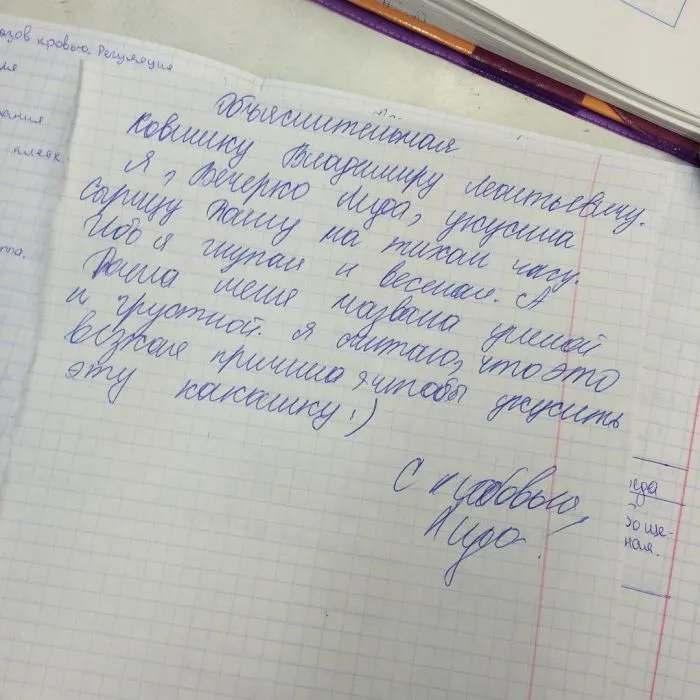 азов кровью. Регуляция
Объяснительная
Ковшику Владимиру Леонтьевичу.
Я, Вечерко Лида, укусила
Сарицу Дашу на тихом часу.
Ибо я глупая и веселая. А
Даша меня назвала умной
и грустной. Я считаю, что это
веская причина чтобы укусить
эту какашку:)
С любовью,
Лида.